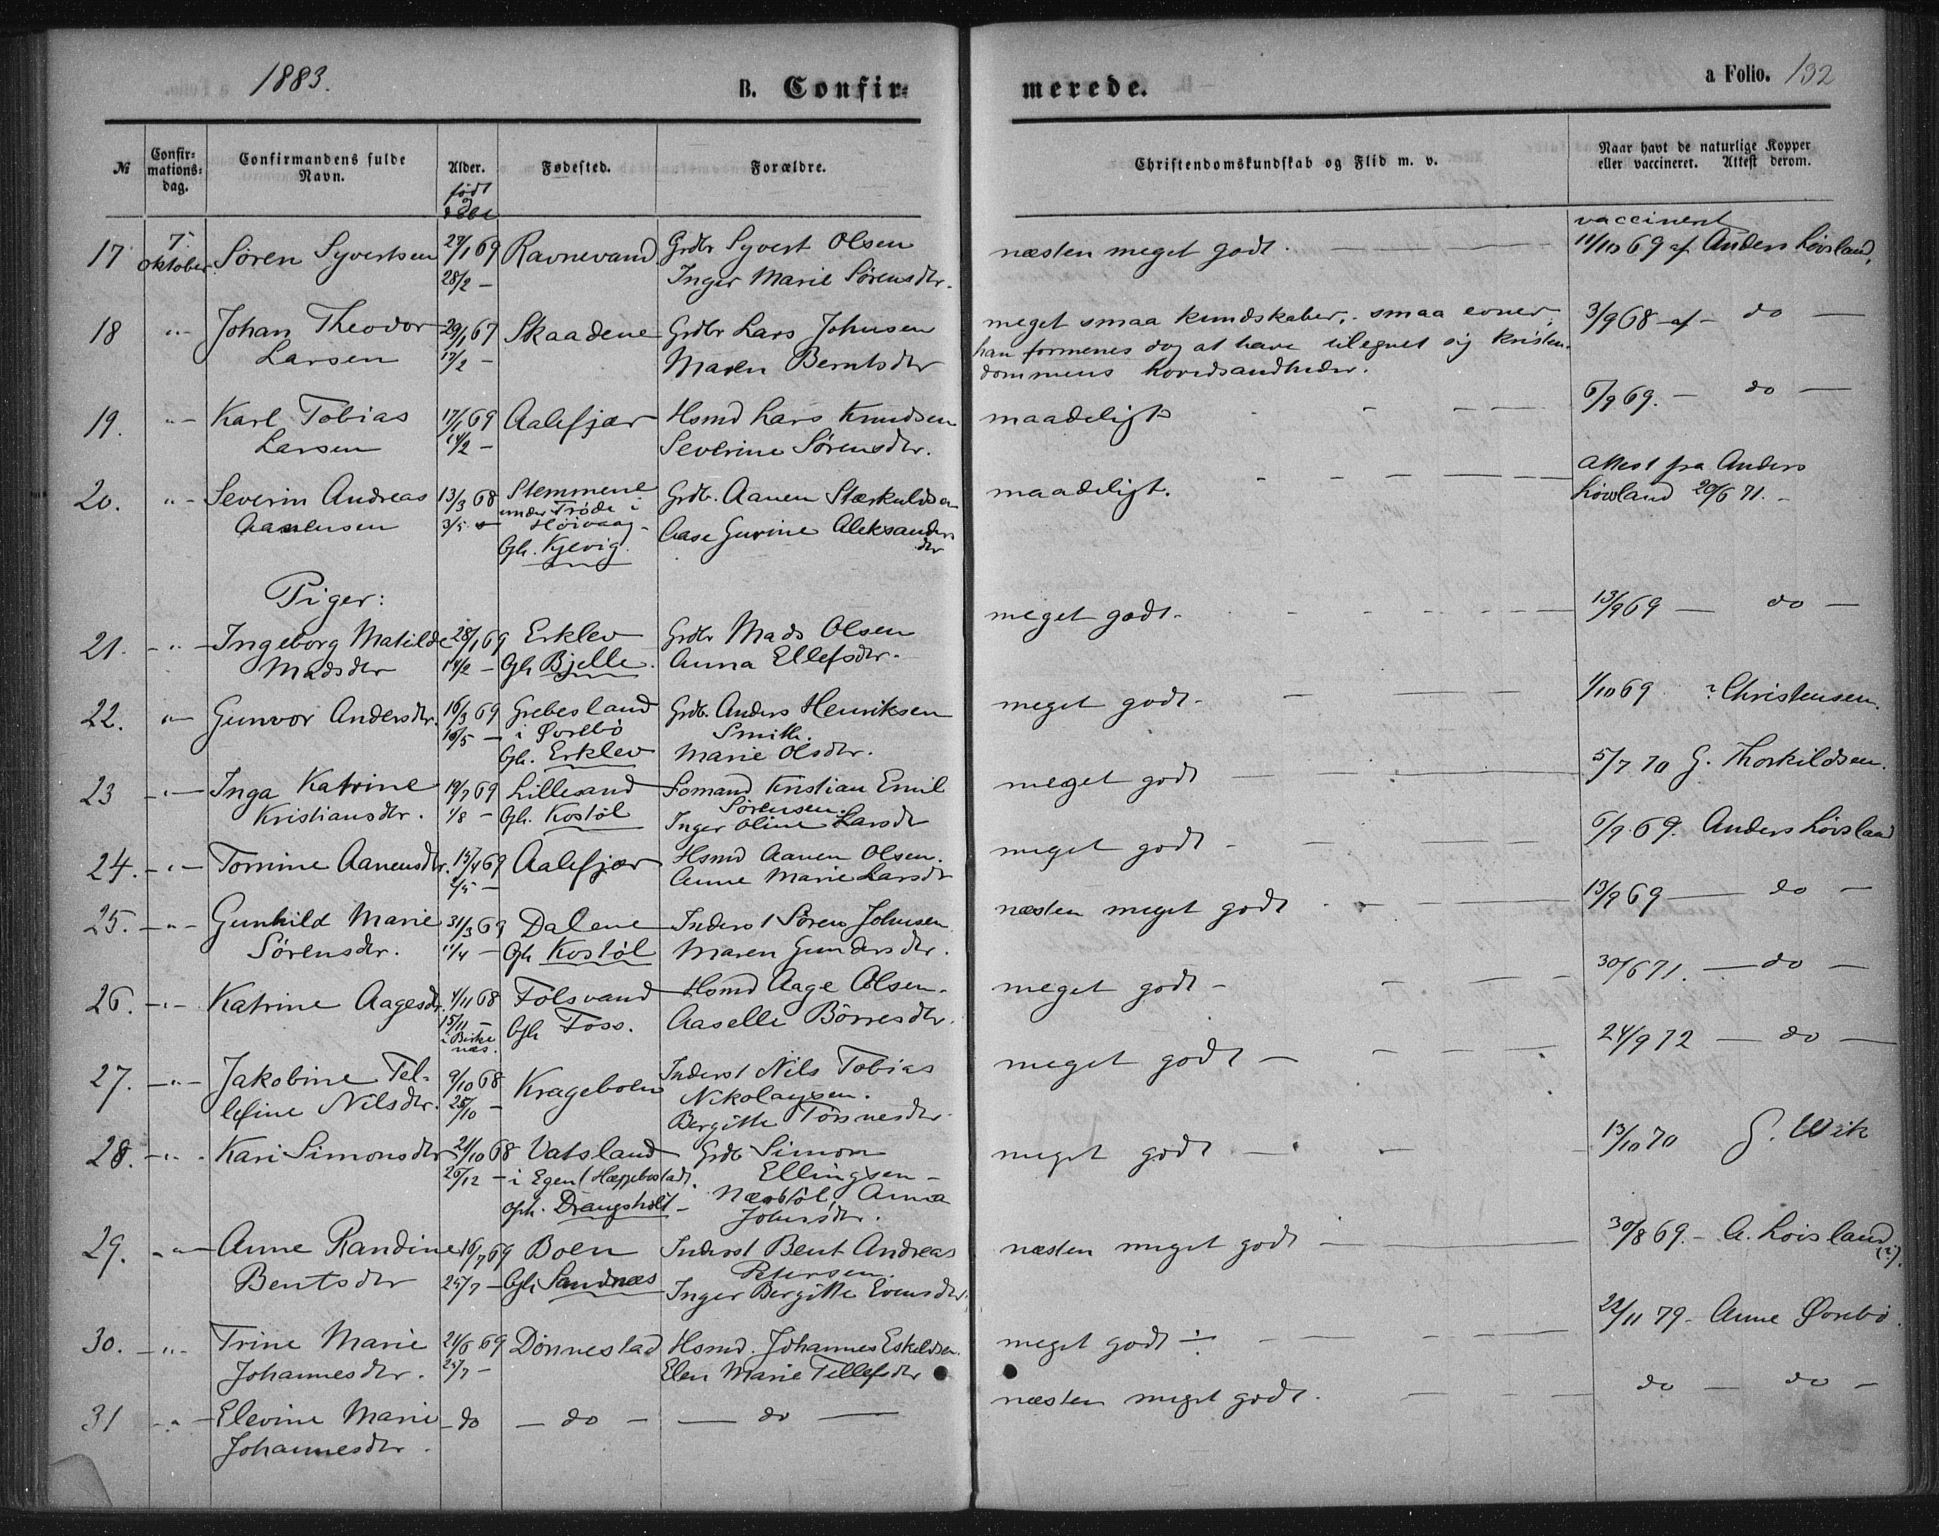 1883.
B. Confir=
merede.
a Folio. 132
№
Confir=
mations=
dag.
Confirmandens fulde
Navn.
Alder.
født
Fødested.
Forældre.
Christendomskundskab og Flid m. v.
Naar havt de naturlige Kopper
eller vaccineret. Attest derom.
17 7.
oktober Søren Syvertsen 27/1 69 28/2 – Ravnevand Grdbr Syvert Olsen
Inger Marie Sørensdtr.
næsten meget godt.
vaccineret
11/10 69 af Anders Løvsland,
18 "– Johan Theodor
Larsen 29/1 67 17/2 – Skaadene Grdbr Lars Johnsen
Maren Berntsdtr
meget smaa kundskaber, smaa evner,
han formenes dog at have tilegnet sig kristen-
dommens hovedsandheder.
3/9 68 – af – do –
19. "– Karl Tobias
Larsen 17/1 69 14/2 – Aalefjær Hsmd Lars Knudsen
Severine Sørensdtr.
maadeligt
6/9 69. – do –
20. "– Severin Andreas
Aanensen 13/3 68 3/5 – Stemmene
under Trøde i
Høivaag –
Gh. Kjevig.
Grdb. Aanen Stærkuldsen
Aase Gurine Aleksanders
dtr
maadeligt.
Attest fra Anders
Løvsland 20/6 71. –
Piger:
21. – "– Ingeborg Matilde
Madsdtr 28/1 69 14/2 – Erklev
Gh Bjelle.
Grdbr Mads Olsen
Anna Ellefsdtr.
meget godt –
13/9 69 – do –
22. "– Gunvor Andersdtr. 16/3 69 16/5 – Grebesland
i Øvrebø
Gh. Erklev
Grdb. Anders Henriksen
Smith.
Marie Olsdtr.
meget godt –
1/10 69 ? Christensen.
23 – "– Inga Katrine
Kristiansdtr. 19/7 69 1/8 – Lillesand
Gh. Kostøl
Somand Kristian Emil
Sørensen.
Inger Oline Larsdt
meget godt
5/7 70 G. Thorkildsen.
24. – "– Tomine Aanensdtr. 15/4 69 2/5 – Aalefjær
Hsmd Aanen Olsen.
Anne Marie Larsdt
meget godt –
6/9 69. Anders Løvsland
25. – "– Gunhild Marie
Sørensdtr. 31/3 69 11/4 – Dalene
Gh Kostøl
Inderst Søren Johnsen
Maren Gundersdtr.
næsten meget godt
13/9 69 – do –
26. – "– Katrine Aagesdt. 1/11 68 15/11 –
i Birke
næs.
Tolsvand
Gh Foss.
Hsmd Aage Olsen.
Aaselle Børresdtr.
meget godt –
30/6 71. – do –
27. – "– Jakobine Tel-
lefine Nilsdtr. 9/10 68 25/10 – Krageboen
Inderst Nils Tobias
Nikolaysen.
Bergitte Tønnesdtr.
meget godt –
24/9 72 – do –
28. – "– Kari Simonsdtr 21/10 68 26/12 – Vatsland
i Egen (Hæggebostad.
oph. Drangsholt –
Grdb Simon
Ellingsen –
Anna
Johnsdtr.
meget godt
13/10 70 G. Wik
29. – "– Anne Randine
Bentsdtr 16/7 69 25/7 – Boen
Gh Sandnæs
Inderst Bent Andreas
Petersen.
Inger Bergitte Evensdtr.
næsten meget godt
30/8 69. – A. Løisland
(?).
30. – "– Trine Marie
Johannesdtr. 21/6 69 25/7 – Dønnestad
Hsmd. Johannes Eskildsen.
Elen Marie Tellefsdtr
meget godt ÷
22/11 79 – Anne Øvrebø.
31 – "– Elevine Marie
Johannesdtr. – do – do – – do –
næsten meget godt.
do – do –